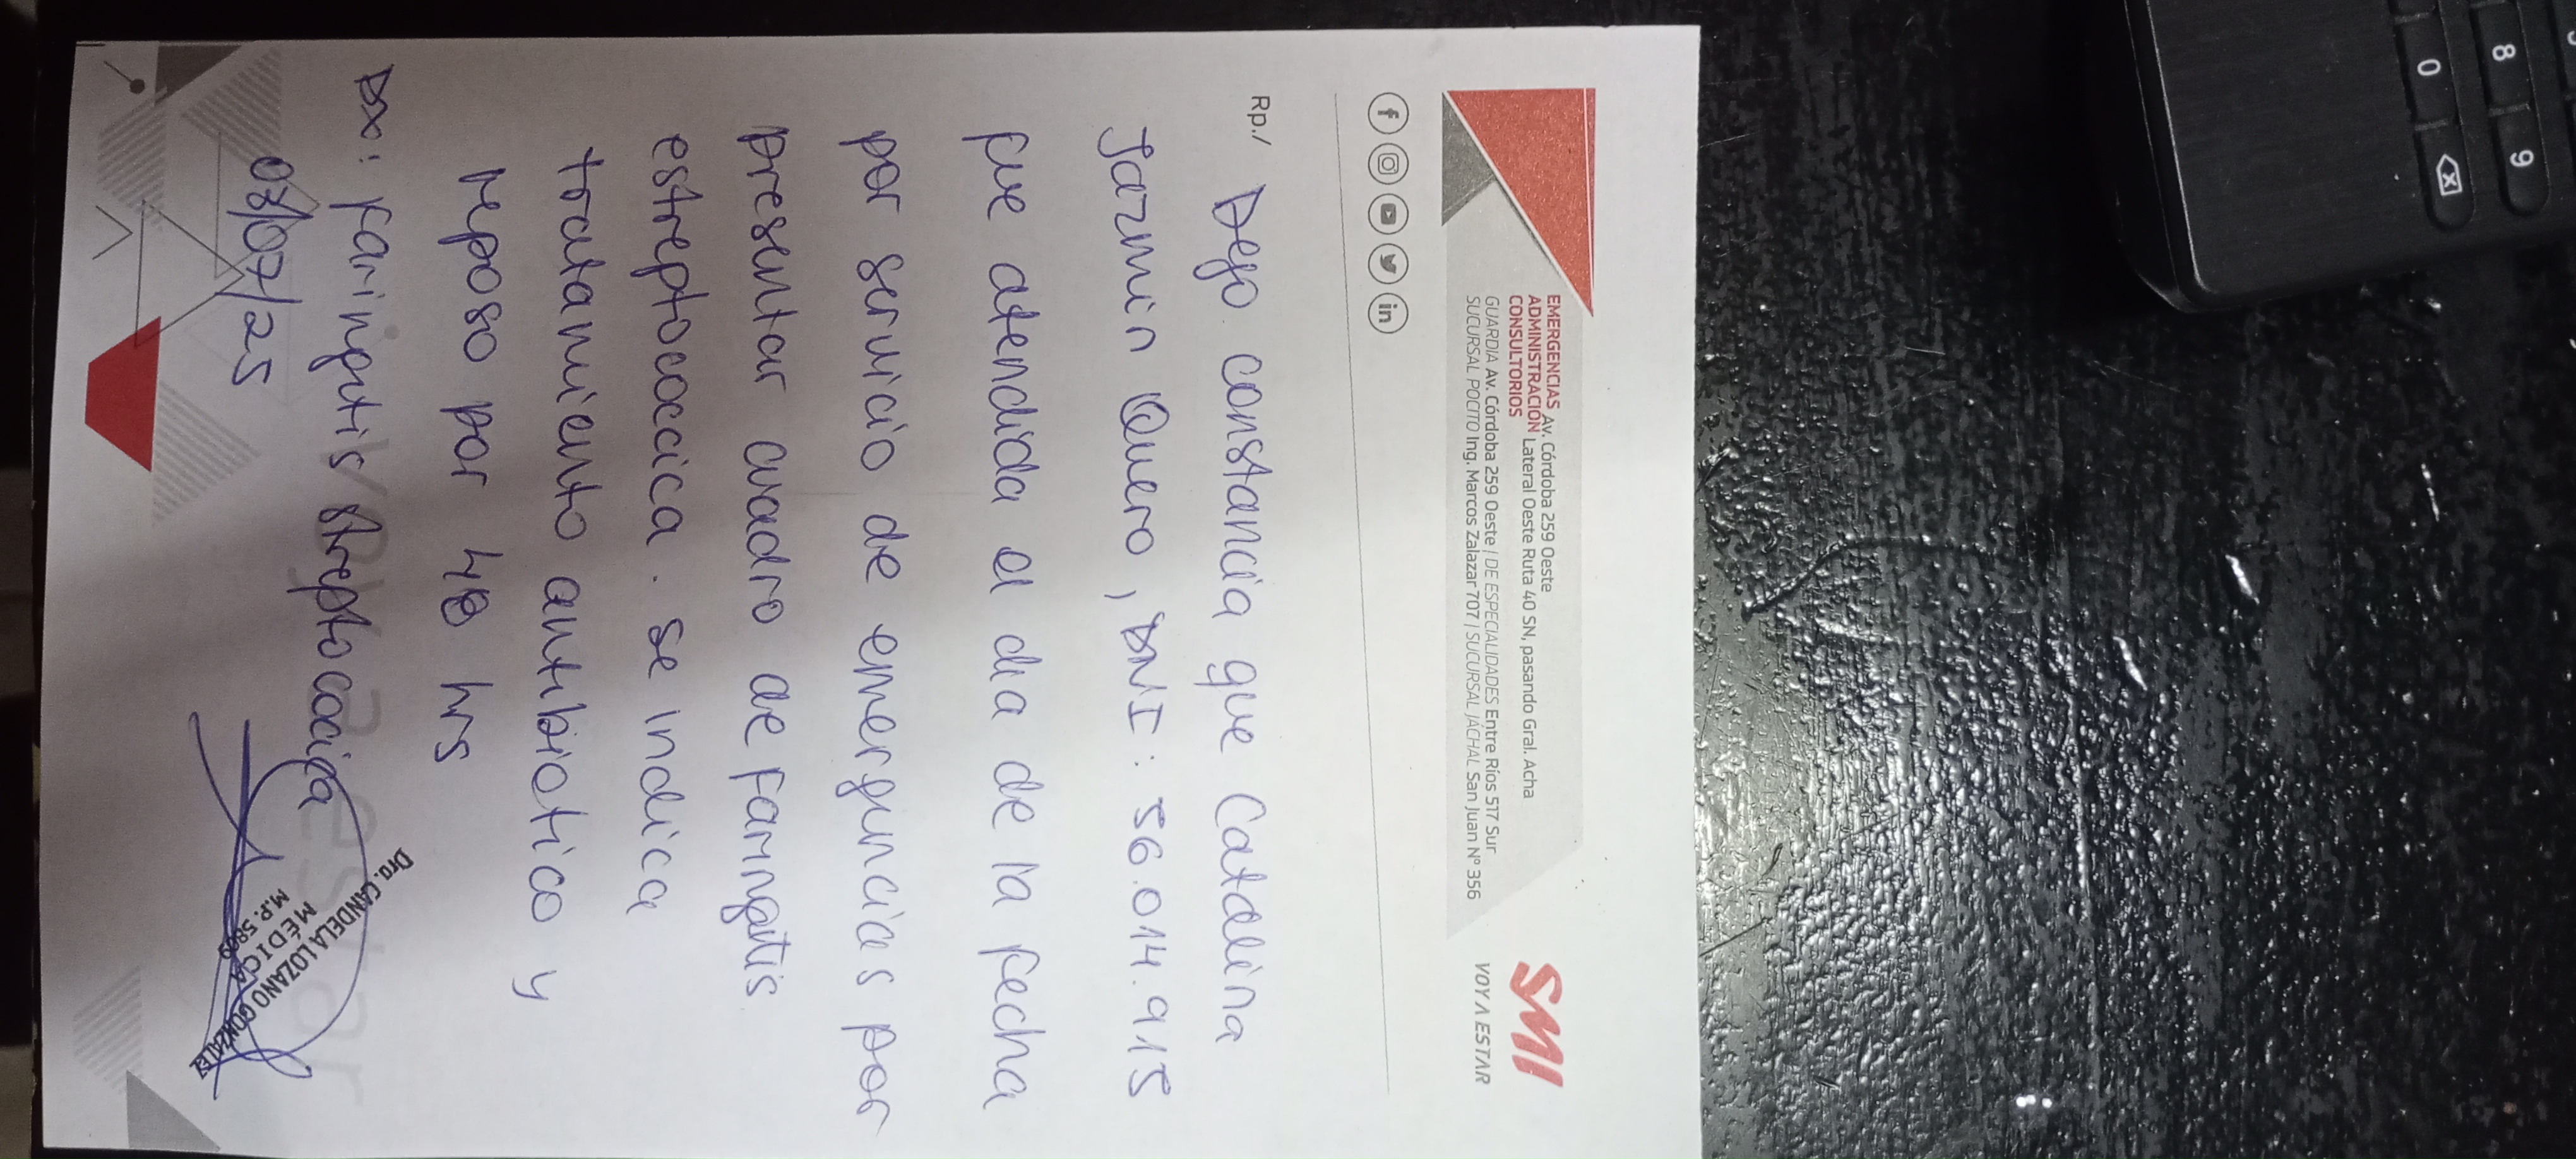 EMERGENCIAS Av. Córdoba 259 Oeste
ADMINISTRACIÓN Lateral Oeste Ruta 40 SN, pasando Gral. Acha
CONSULTORIOS
GUARDIA Av. Córdoba 259 Oeste | DE ESPECIALIDADES Entre Ríos 517 Sur
SUCURSAL POCITO Ing. Marcos Zalazar 707 | SUCURSAL JÁCHAL San Juan N° 356
SMI
VOY A ESTAR
Rp./
Dejo constancia que Catalina
Jazmin Quero, DNI: 56.014.915
fue atendida el dia de la fecha
por servicio de emergencias por
presentar cuadro de Faringitis
estreptococcica. se indica
tratamiento antibiotico y
reposo por 48 hrs
Dx: Faringitis streptococcica
08/07/25
Dra. CANDELA LOZANO GONZALEZ
MÉDICA
M.P. 5809
8
9
0